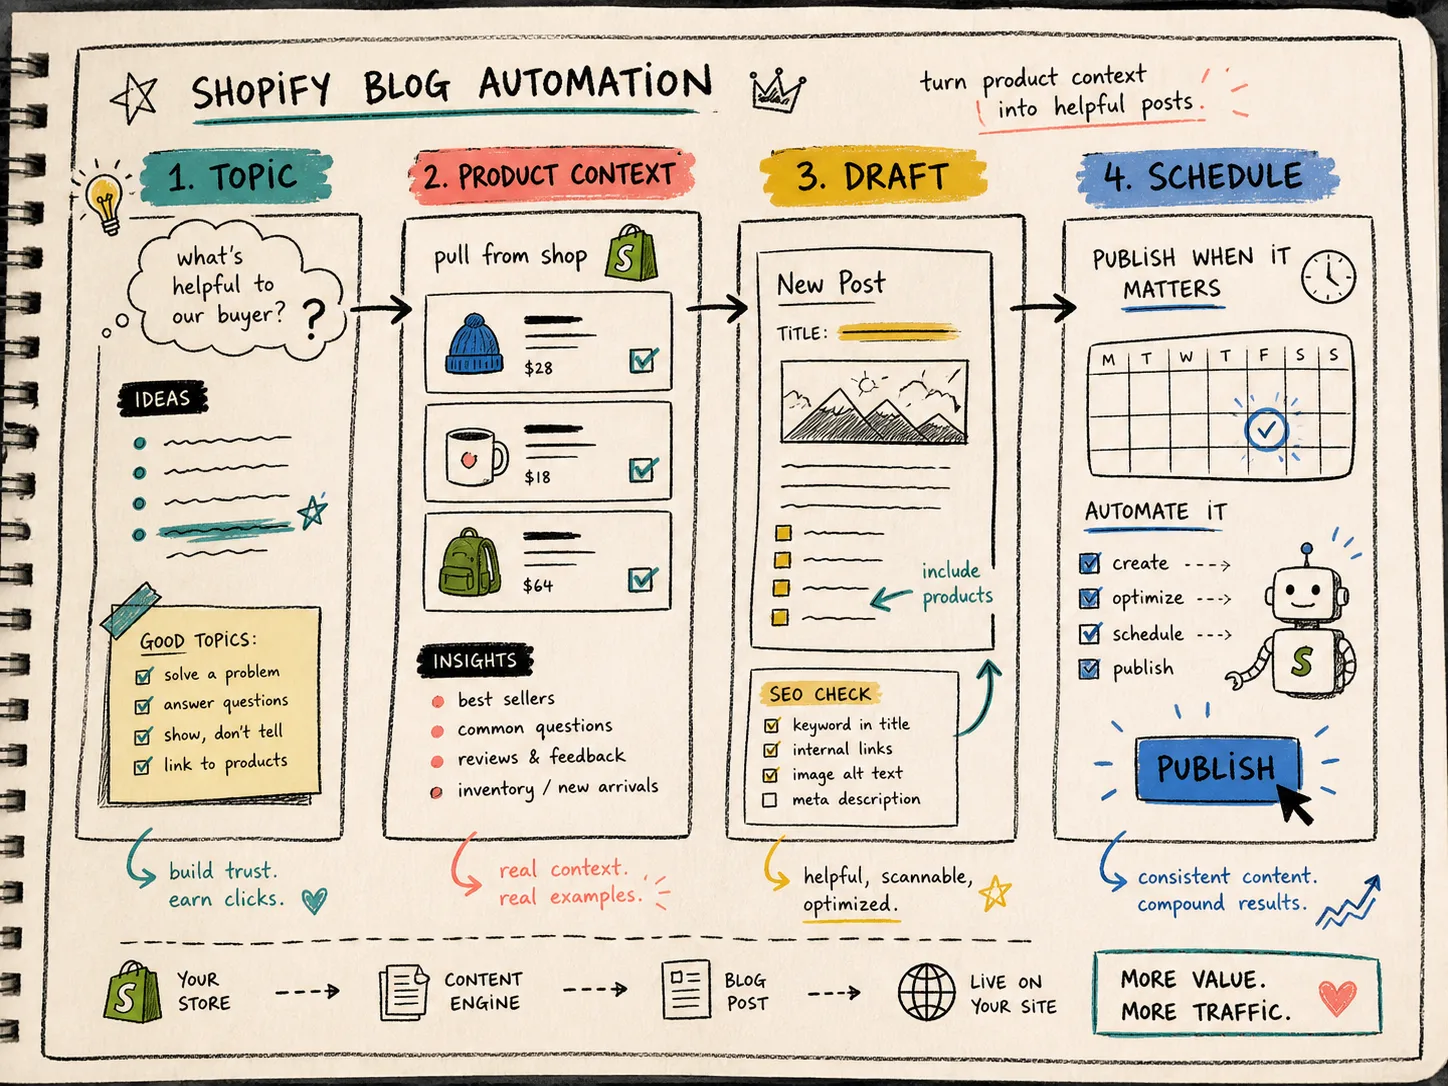 SHOPIFY BLOG AUTOMATION
turn product context
into helpful posts.
1. TOPIC
what's
helpful to
our buyer?
?
IDEAS
GOOD TOPICS:
solve a problem
answer questions
show, don't tell
link to products
build trust.
earn clicks.
2. PRODUCT CONTEXT
pull from shop
S
$28
$18
$64
INSIGHTS
best sellers
common questions
reviews & feedback
inventory / new arrivals
real context.
real examples.
3. DRAFT
New Post
TITLE:
include
products
SEO CHECK
keyword in title
internal links
image alt text
meta description
helpful, scannable,
optimized.
4. SCHEDULE
PUBLISH WHEN IT
MATTERS
M T W T F S S
AUTOMATE IT
create
optimize
schedule
publish
S
PUBLISH
consistent content.
compound results.
S
YOUR
STORE
CONTENT
ENGINE
BLOG
POST
LIVE ON
YOUR SITE
MORE VALUE.
MORE TRAFFIC.